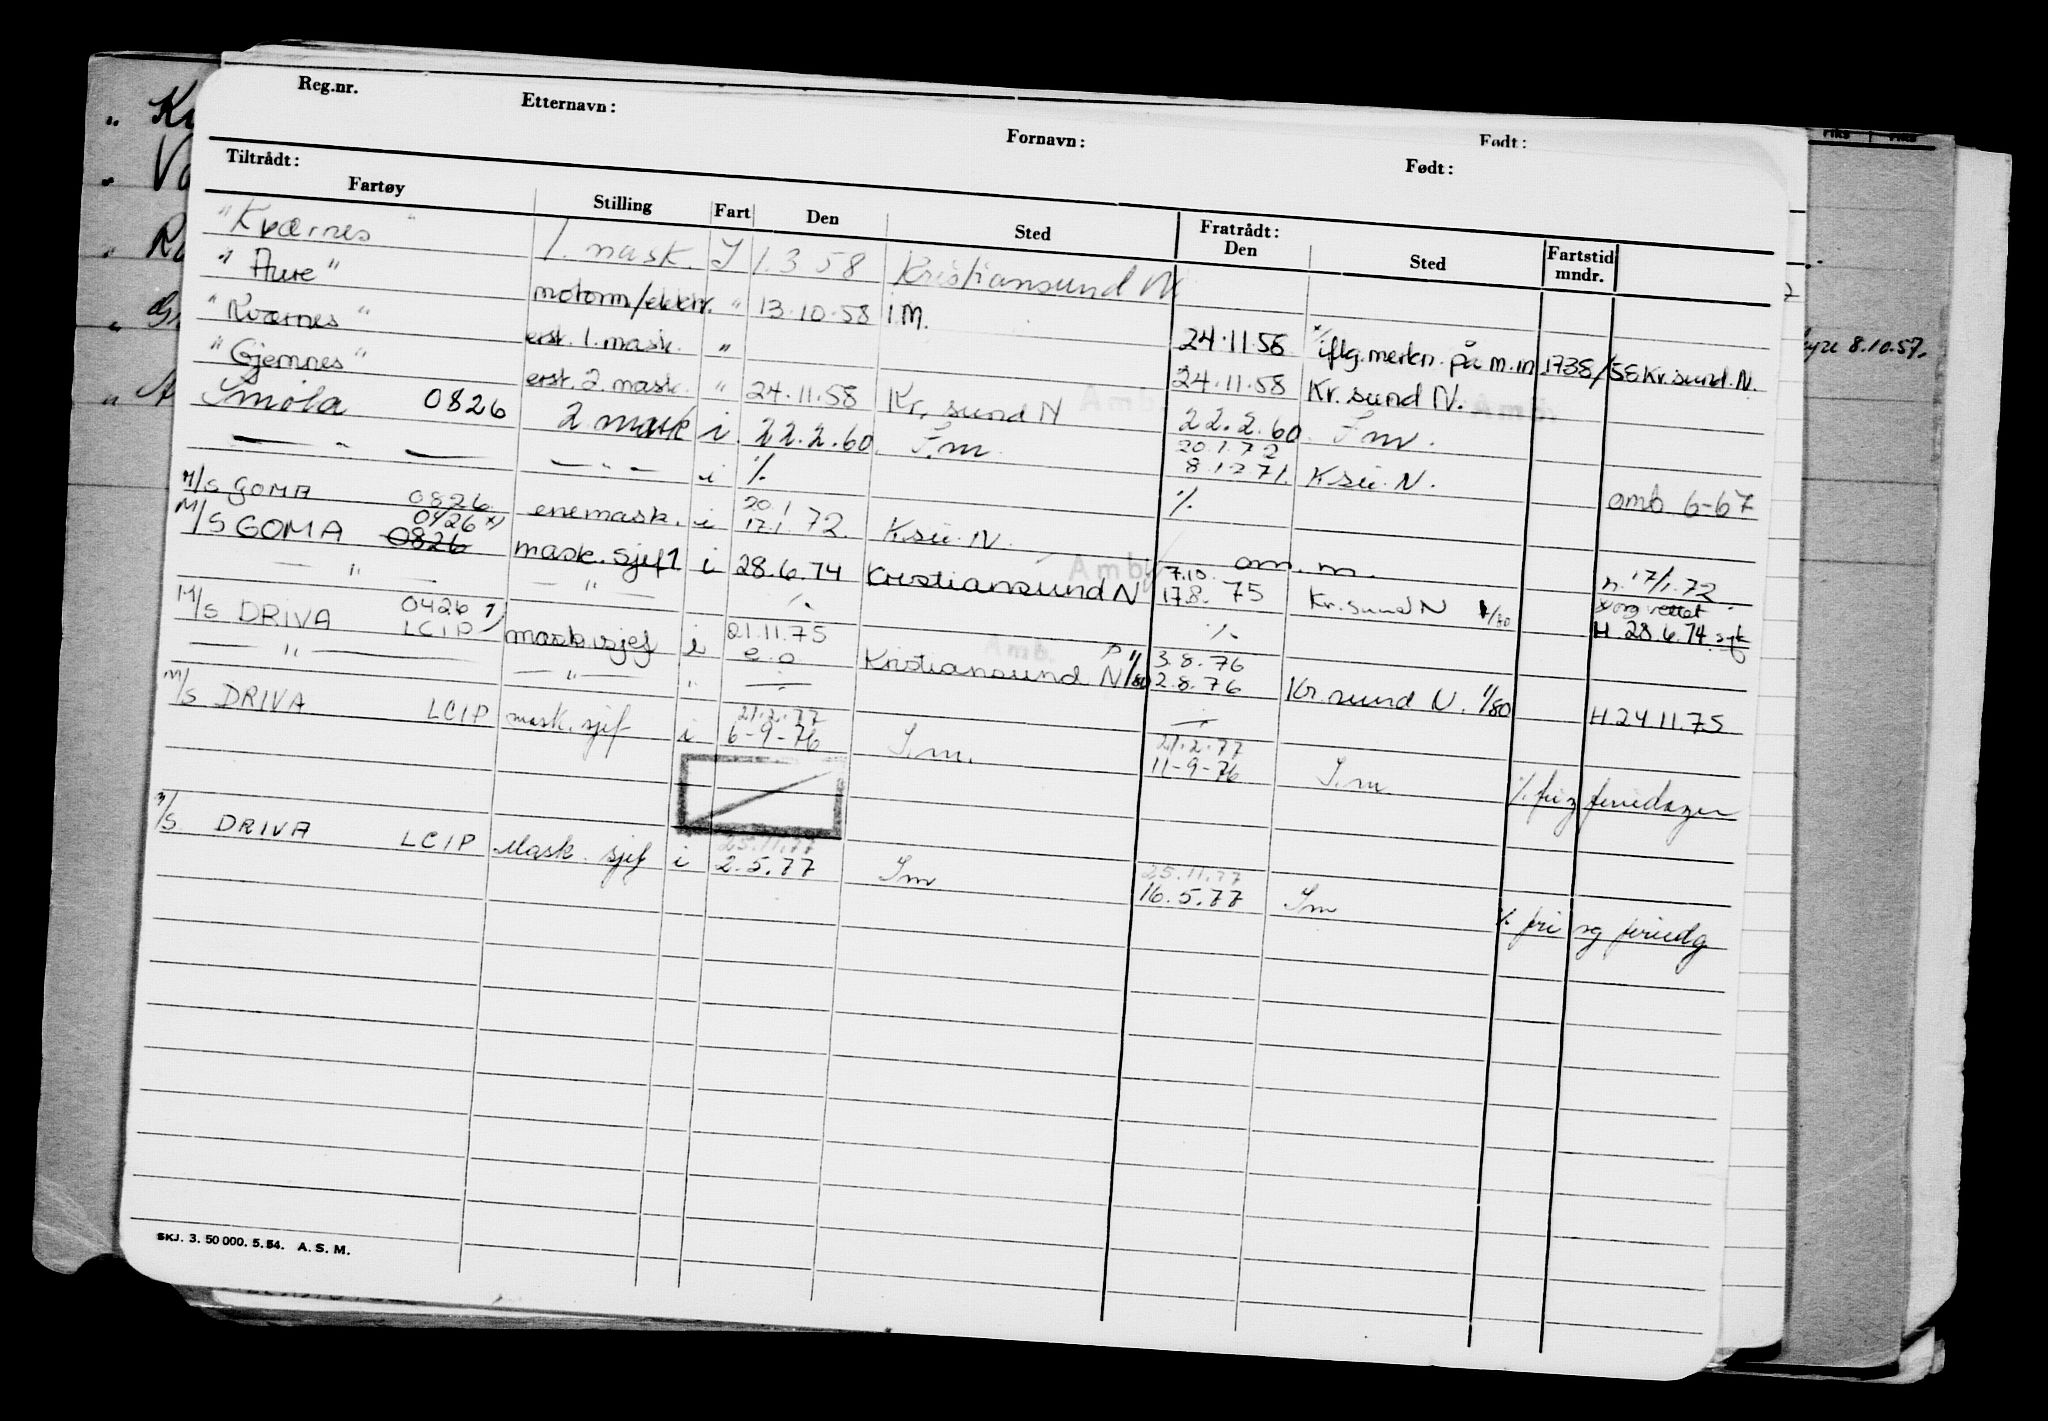 Reg.nr. Etternavn: Fornavn: Født:
Født:
Tiltrådt: Fratrådt:
Fartøy Stilling Fart Den Sted Den Sted Fartstid mndr.
"Kværnes" 1. mask. I 1.3 58 Kristiansund N
"Aure" motorm/elektr. " 13.10.58 i.M. 24.11.58 iflg. merkn. på m.m. 1738/58 Kr.sund. N.
"Kværnes" erst. 1. mask. " 24.11.58 Kr.sund N.
"Gjemnes" erst. 2. mask. " 24.11.58 Kr. sund N 22.2.60. I.m.
Smøla 0826 2 mask i 22.2.60. I.m. 20.1.72 8.12.71. Ksu. N.
— " — — " — i ./. ./. omb 6-67
M/S GOMA 0826 enemask. i 20.1 17.1.72. Ksu. N. om. m. n. 17/1.72.
M/S GOMA 0426 x) 0826 mask. sjef 1 i 28.6.74 Kristiansund N 7.10. 17.8.75 Kr.sund N 1/80 H 28.6.74. sjef
— " — — " — ./. ./.
M/S DRIVA 0426 1) LCIP mask.sjef i 21.11.75 e.o Kristiansund N 1/80 3.8.76 2.8.76 Kr.sund N. 1/80 H 24 11.75
— " — — " — "
M/S DRIVA LCIP mask. sjef i 21.2.77 6-9-76 I.m. 21.2.77 11-9-76 I.m ./. fri og feriedager
M/S DRIVA LCIP Mask. sjef i 25.11.77 2.5.77 I m 25.11.77 16.5.77 I m ./. fri og feriedg
SKJ. 3. 50 000. 5. 54. A. S. M.
8.10.57.